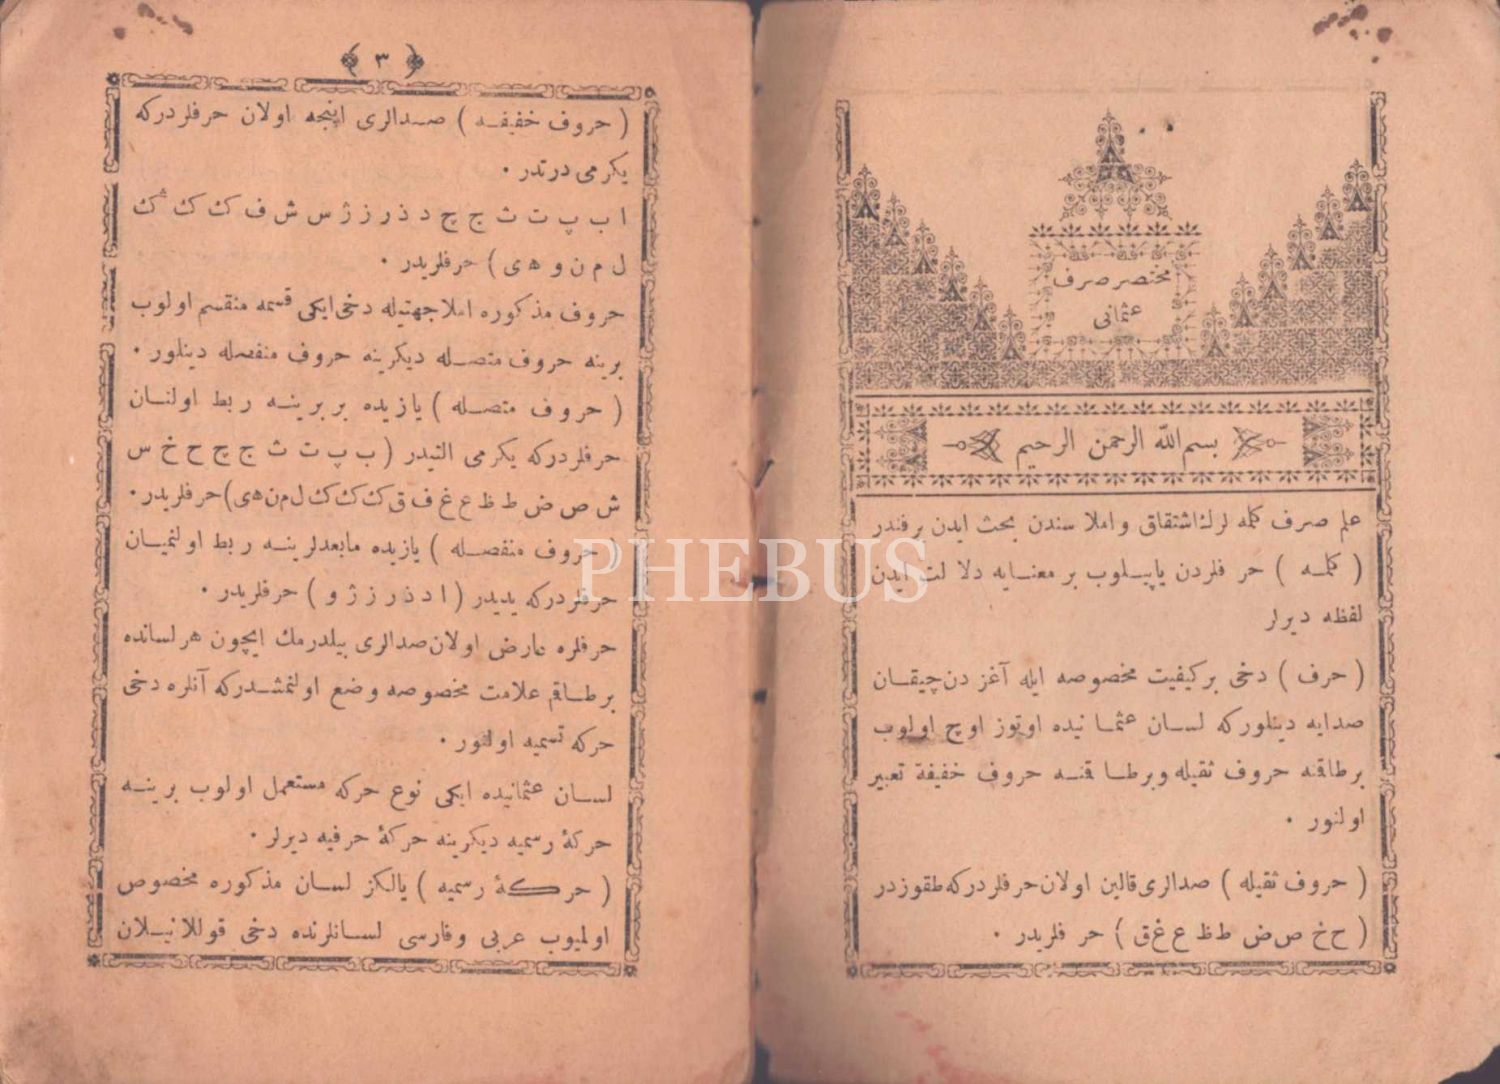 مختصر صرف
عثمانی
بسم الله الرحمن الرحیم
علم صرف کلمه لرك اشتقاق و املا سندن بحث ایدن بر فندر
( کلمه ) حر فلردن یاپیلوب بر معنایه دلا لت ایدن
لفظه دیرلر
( حرف ) دخی بر کیفیت مخصوصه ایله آغز دن چیقان
صدایه دینلورکه لسان عثما نیده اوتوز اوچ اولوب
بر طاقنه حروف ثقیله و بر طا قنه حروف خفیفة تعبیر
اولنور ٠
( حروف ثقیله ) صدالری قالین اولان حر فلردرکه طقوزدر
( ح خ ص ض ط ظ ع غ ق ) حر فلریدر ٠
﴿ ٣ ﴾
( حروف خفیفه ) صدالری اینجه اولان حرفلردرکه
یکرمی درتدر ٠
ا ب پ ت ث ج چ د ذ ر ز ژ س ش ف ك ك ڭ
ل م ن و ه ی ) حرفلریدر ٠
حروف مذکوره املا جهتیله دخی ایکی قسمه منقسم اولوب
برینه حروف متصله دیکرینه حروف منفصله دینلور ٠
( حروف متصله ) یازیده بر برینه ربط اولنان
حرفلردرکه یکرمی التیدر ( ب پ ت ث ج چ ح خ س
ش ص ض ط ظ ع غ ف ق ك ك ك ل م ن ه ی ) حرفلریدر ٠
( حروف منفصله ) یازیده مابعدلرینه ربط اولنمیان
حرفلردرکه یدیدر ( ا د ذ ر ز ژ و ) حرفلریدر ٠
حرفلره عارض اولان صدالری بیلدرمك ایچون هر لسانده
بر طاقم علامت مخصوصه وضع اولنمشدرکه آنلره دخی
حرکه تسمیه اولنور ٠
لسان عثمانیده ایکی نوع حرکه مستعمل اولوب برینه
حرکهٔ رسمیه دیکرینه حرکهٔ حرفیه دیرلر ٠
( حرکهٔ رسمیه ) یالکز لسان مذکوره مخصوص
اولمیوب عربی و فارسی لسانلرنده دخی قوللانیلان
PHEBUS